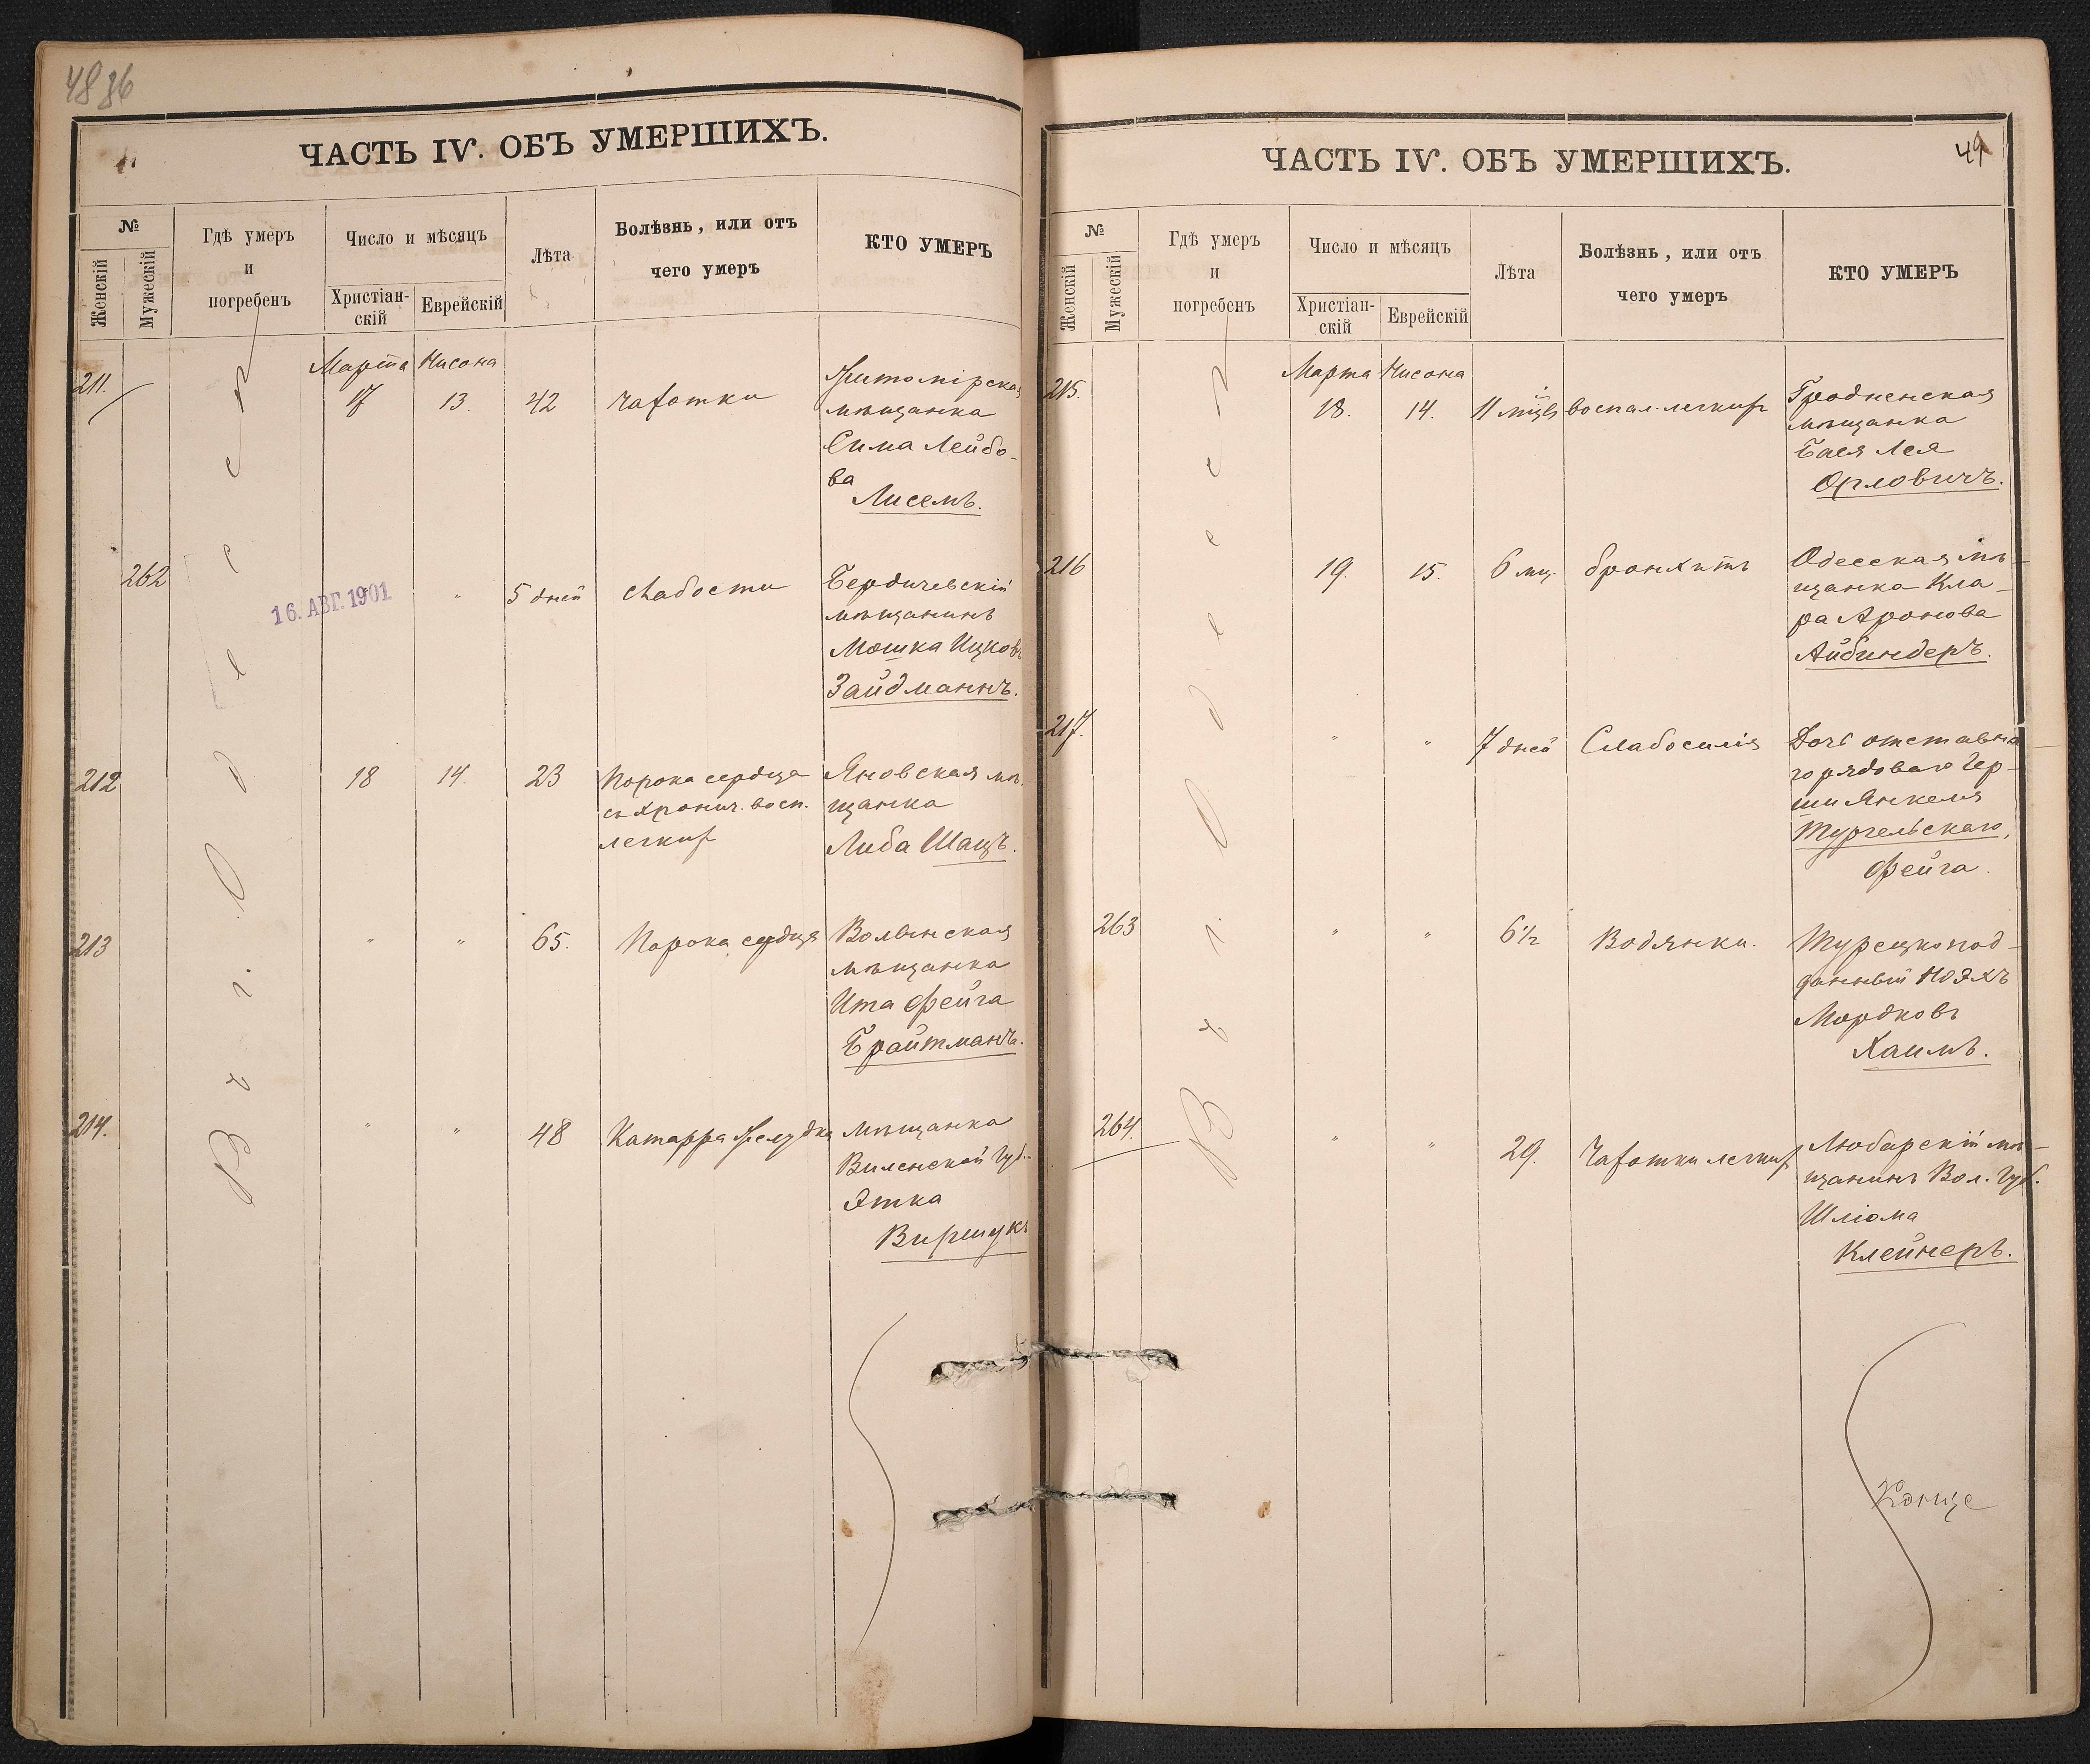 ЧАСТЬ IV. ОБЪ УМЕРШИХЪ.
№
Женскій
Мужескій
Гдѣ умеръ
и
погребенъ
Число и мѣсяцъ
Христіан-
скій
Еврейскій
Лѣта
Болѣзнь, или отъ
чего умеръ
КТО УМЕРЪ
Въ г. Одессѣ
Марта Нисона
211. 17 13. 42 чахотки
мѣщанка
Сима Лейбо-
ва
Лисемъ.
262 " 5 дней слабости
16. АВГ. 1901
Бердичевскій
мѣщанинъ
Мошка Ицковъ
Зайдманнъ.
212 18 14. 23 Порока сердца
съ хронич. восп.
легкихъ
Яновская мѣ-
щанка
Либа Шацъ.
213 " " 65. Порока сердца
Волынская
мѣщанка
Ита Фейга
Брайтманъ.
214. " " 48 Катарра желудка
мѣщанка
Виленской губ.
Этка
Виршукъ
ЧАСТЬ IV. ОБЪ УМЕРШИХЪ.
49
№
Женскій
Мужескій
Гдѣ умеръ
и
погребенъ
Число и мѣсяцъ
Христіан-
скій
Еврейскій
Лѣта
Болѣзнь, или отъ
чего умеръ
КТО УМЕРЪ
Въ г. Одессѣ
Марта Нисона
215. 18. 14. 11 мѣц воспал. легкихъ
Гродненская
мѣщанка
Бася Лея
Орловичъ.
216 19. 15. 6 мц. бронхитъ
Одесская мѣ-
щанка Кла-
ра Аронова
Айбиндеръ.
217. " " 7 дней Слабосилія
Дочь отставна
го рядоваго Гер-
ши Янкеля
Тургельскаго,
Фейга.
263 " " 6½ Водянки.
Турецкопод-
данный Ноэхъ
Мордковъ
Хаимъ.
264. " " 29. Чахотки легкихъ
Любарскій мѣ-
щанинъ Вол. губ.
Шліома
Клейнеръ.